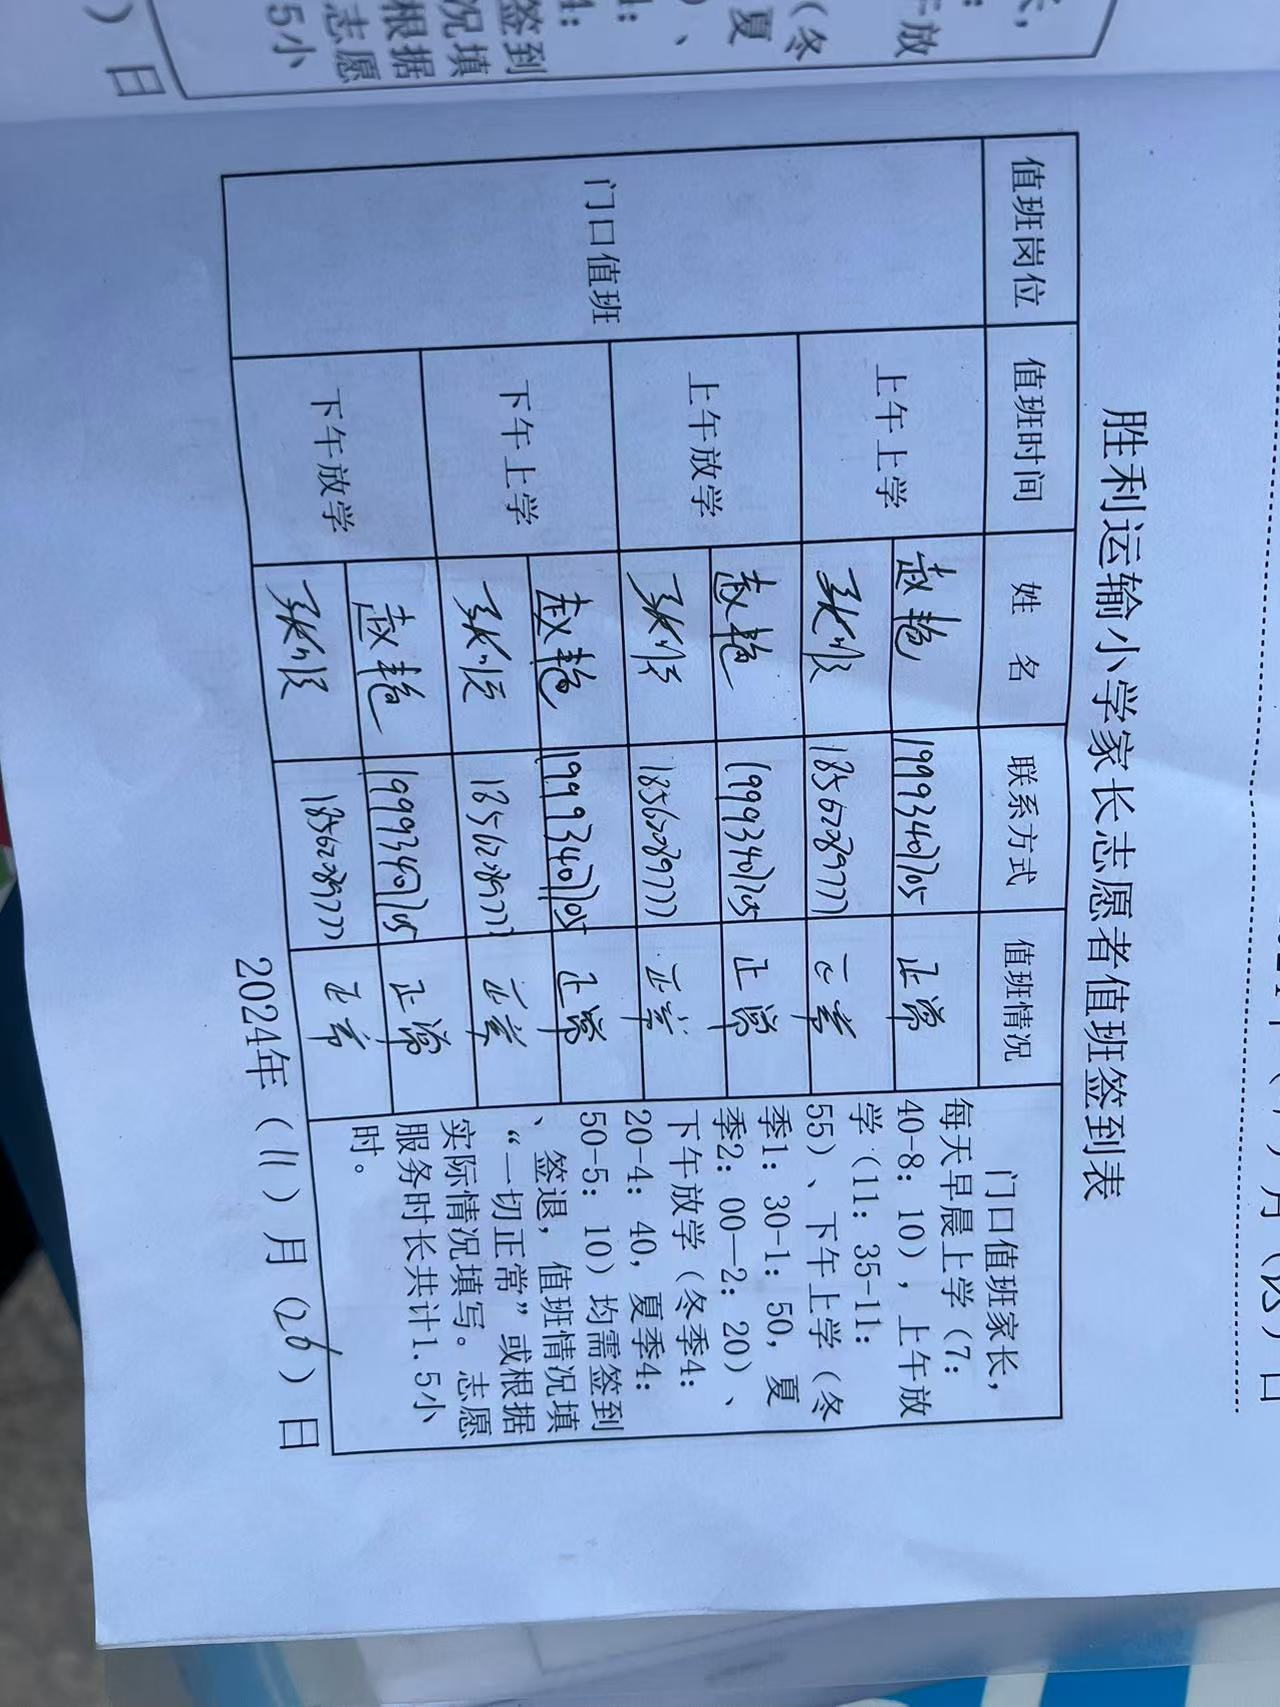 胜利运输小学家长志愿者值班签到表
值班岗位 值班时间 姓 名 联系方式 值班情况
门口值班
上午上学
赵艳 19993407705 正常
张顺 18562089777 正常
上午放学
赵艳 19993407705 正常
张顺 18562089777 正常
下午上学
赵艳 19993407705 正常
张顺 18562089777 正常
下午放学
赵艳 19993407705 正常
张顺 18562089777 正常
门口值班家长，
每天早晨上学（7：
40-8：10），上午放
学（11：35-11：
55）、下午上学（冬
季1：30-1：50，夏
季2：00—2：20）、
下午放学（冬季4：
20-4：40，夏季4：
50-5：10）均需签到
、签退，值班情况填
“一切正常”或根据
实际情况填写。志愿
服务时长共计1.5小
时。
2024年（11）月（26）日
午放
（冬
夏
、
签到
况填
根据
志愿
5小
）日